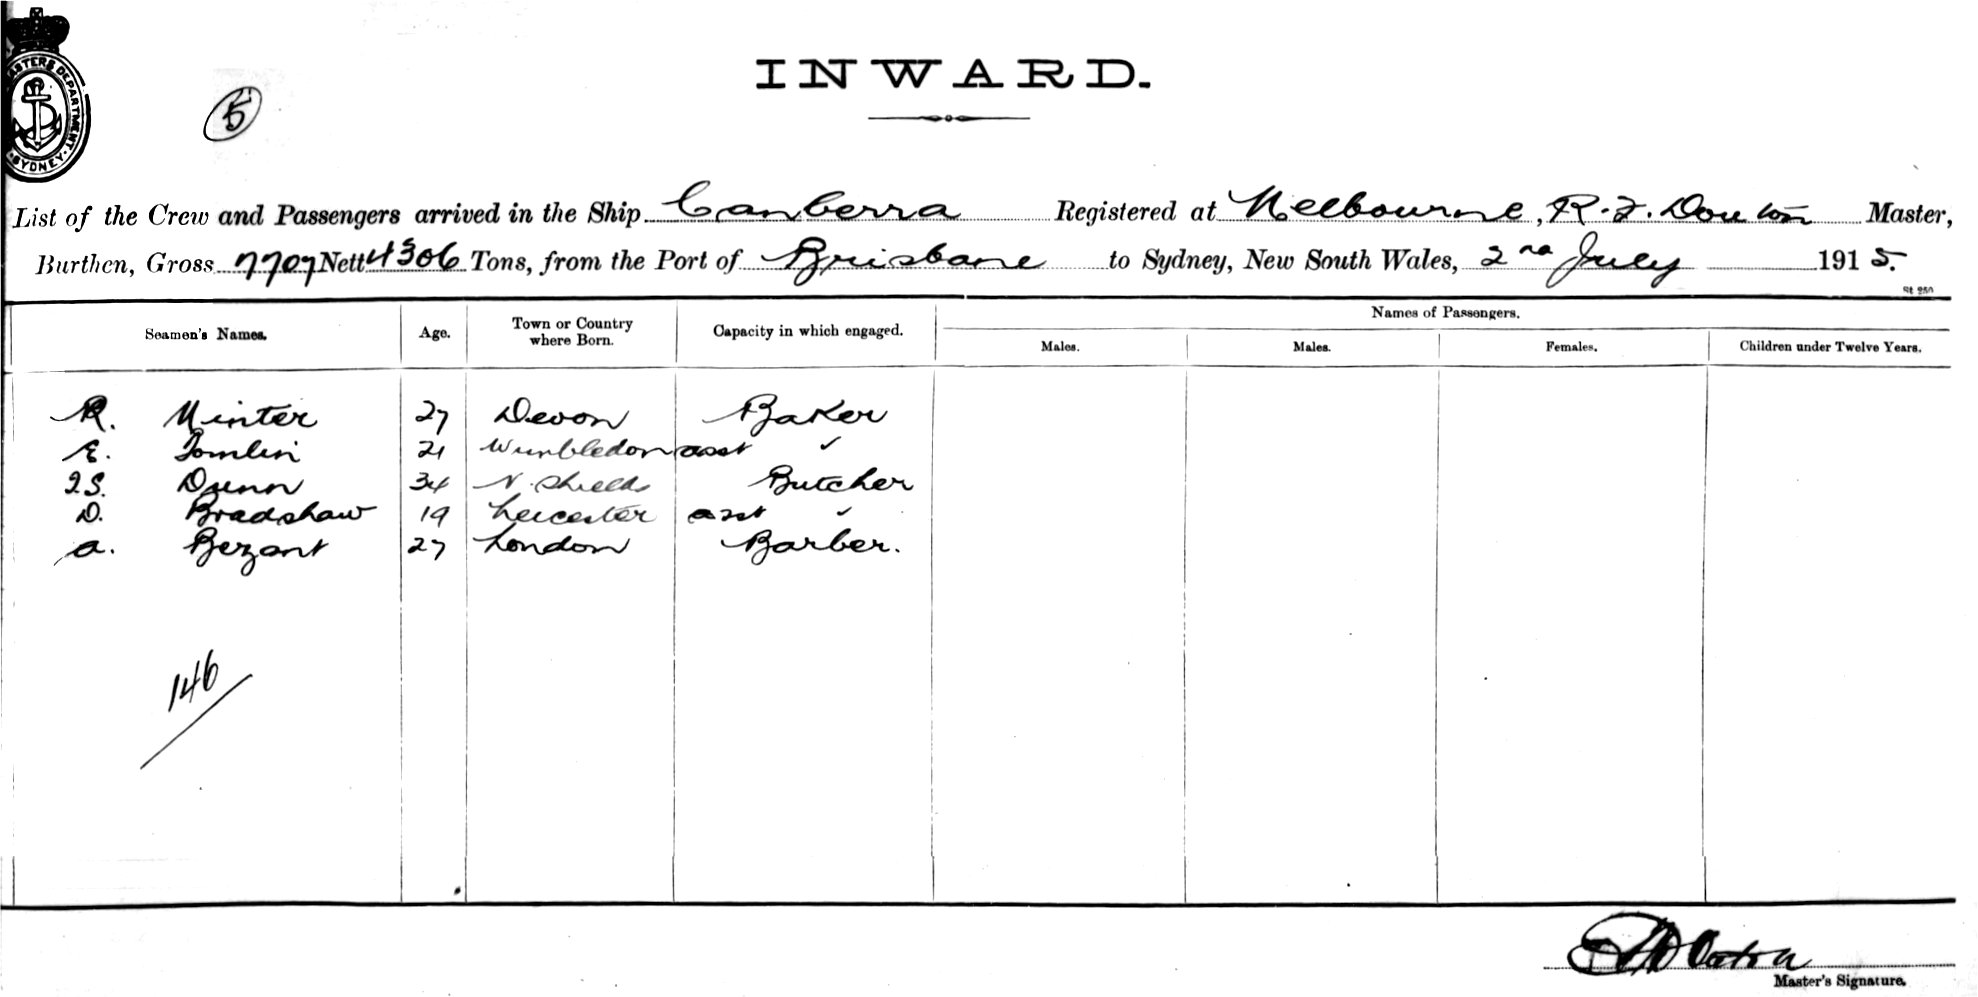 MASTERS DEPARTMENT
SYDNEY
5
INWARD.
List of the Crew and Passengers arrived in the Ship Canberra Registered at Melbourne, R. J. Master,
Burthen, Gross 7707 Nett 4306 Tons, from the Port of Brisbane to Sydney, New South Wales, 2nd July 1915.
Seamen's Names. Age. Town or Country where Born. Capacity in which engaged. Names of Passengers.
Males. Males. Females. Children under Twelve Years.
R. Minter 27 Devon Baker
E. Tomlin 21 Wimbledon asst ✓
Dunn 34 N. Shields Butcher
D. Bradshaw 19 Leicester asst ✓
A. Bezant 27 London Barber.
146
Master's Signature.